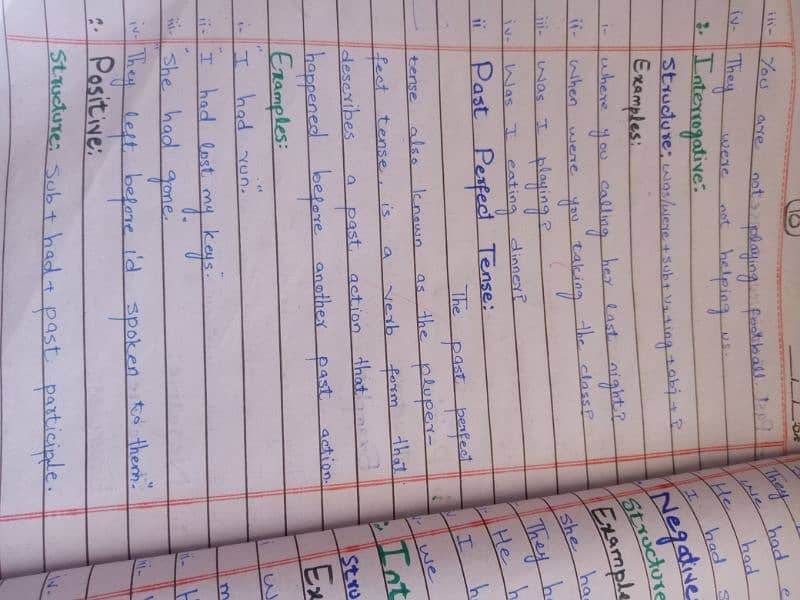 10
iii- You are not playing football.
iv- They were not helping us.
Interrogative:
Structure: was/were + sub + v + ing + obj + ?
Examples:
i- where you calling her last night?
ii- When were you taking the class?
iii- Was I playing?
iv- Was I eating dinner?
ii Past Perfect Tense:
The past perfect
tense also known as the pluper-
fect tense, is a verb form that
describes a past action that
happened before another past action.
Examples:
i- "I had run."
ii- "I had lost my keys."
iii- "She had gone."
iv- "They left before i'd spoken to them."
Positive:
Structure: Sub + had + past participle.
They had
We had
He had
I had
Negative:
Structure
Example
She ha
They h
He h
I h
we
Int
Stru
Ex
i W
ii
iii-
iv-